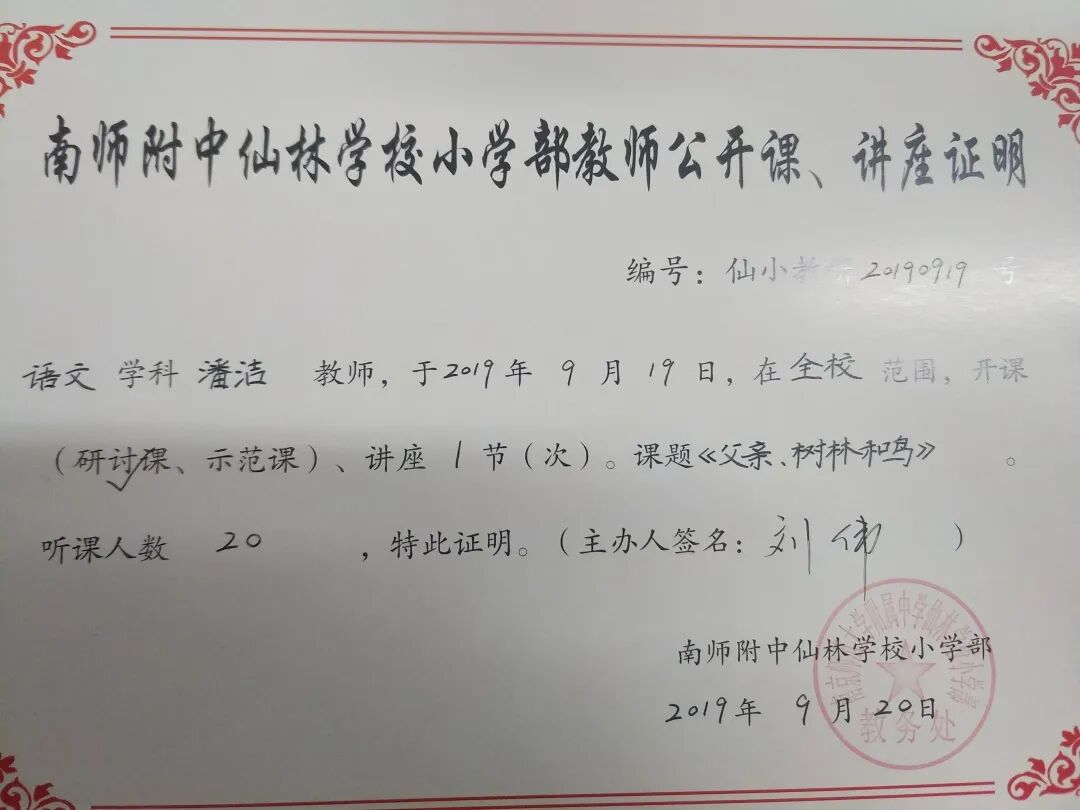 南师附中仙林学校小学部教师公开课、讲座证明
编号：仙小教研20190919号
语文 学科 潘洁 教师，于2019年 9 月 19 日，在 全校 范围，开课
（研讨课、示范课）、讲座 1 节（次）。课题《父亲、树林和鸟》 。
听课人数 20 ，特此证明。（主办人签名：刘伟 ）
南师附中仙林学校小学部
2019年 9 月 20日
教务处